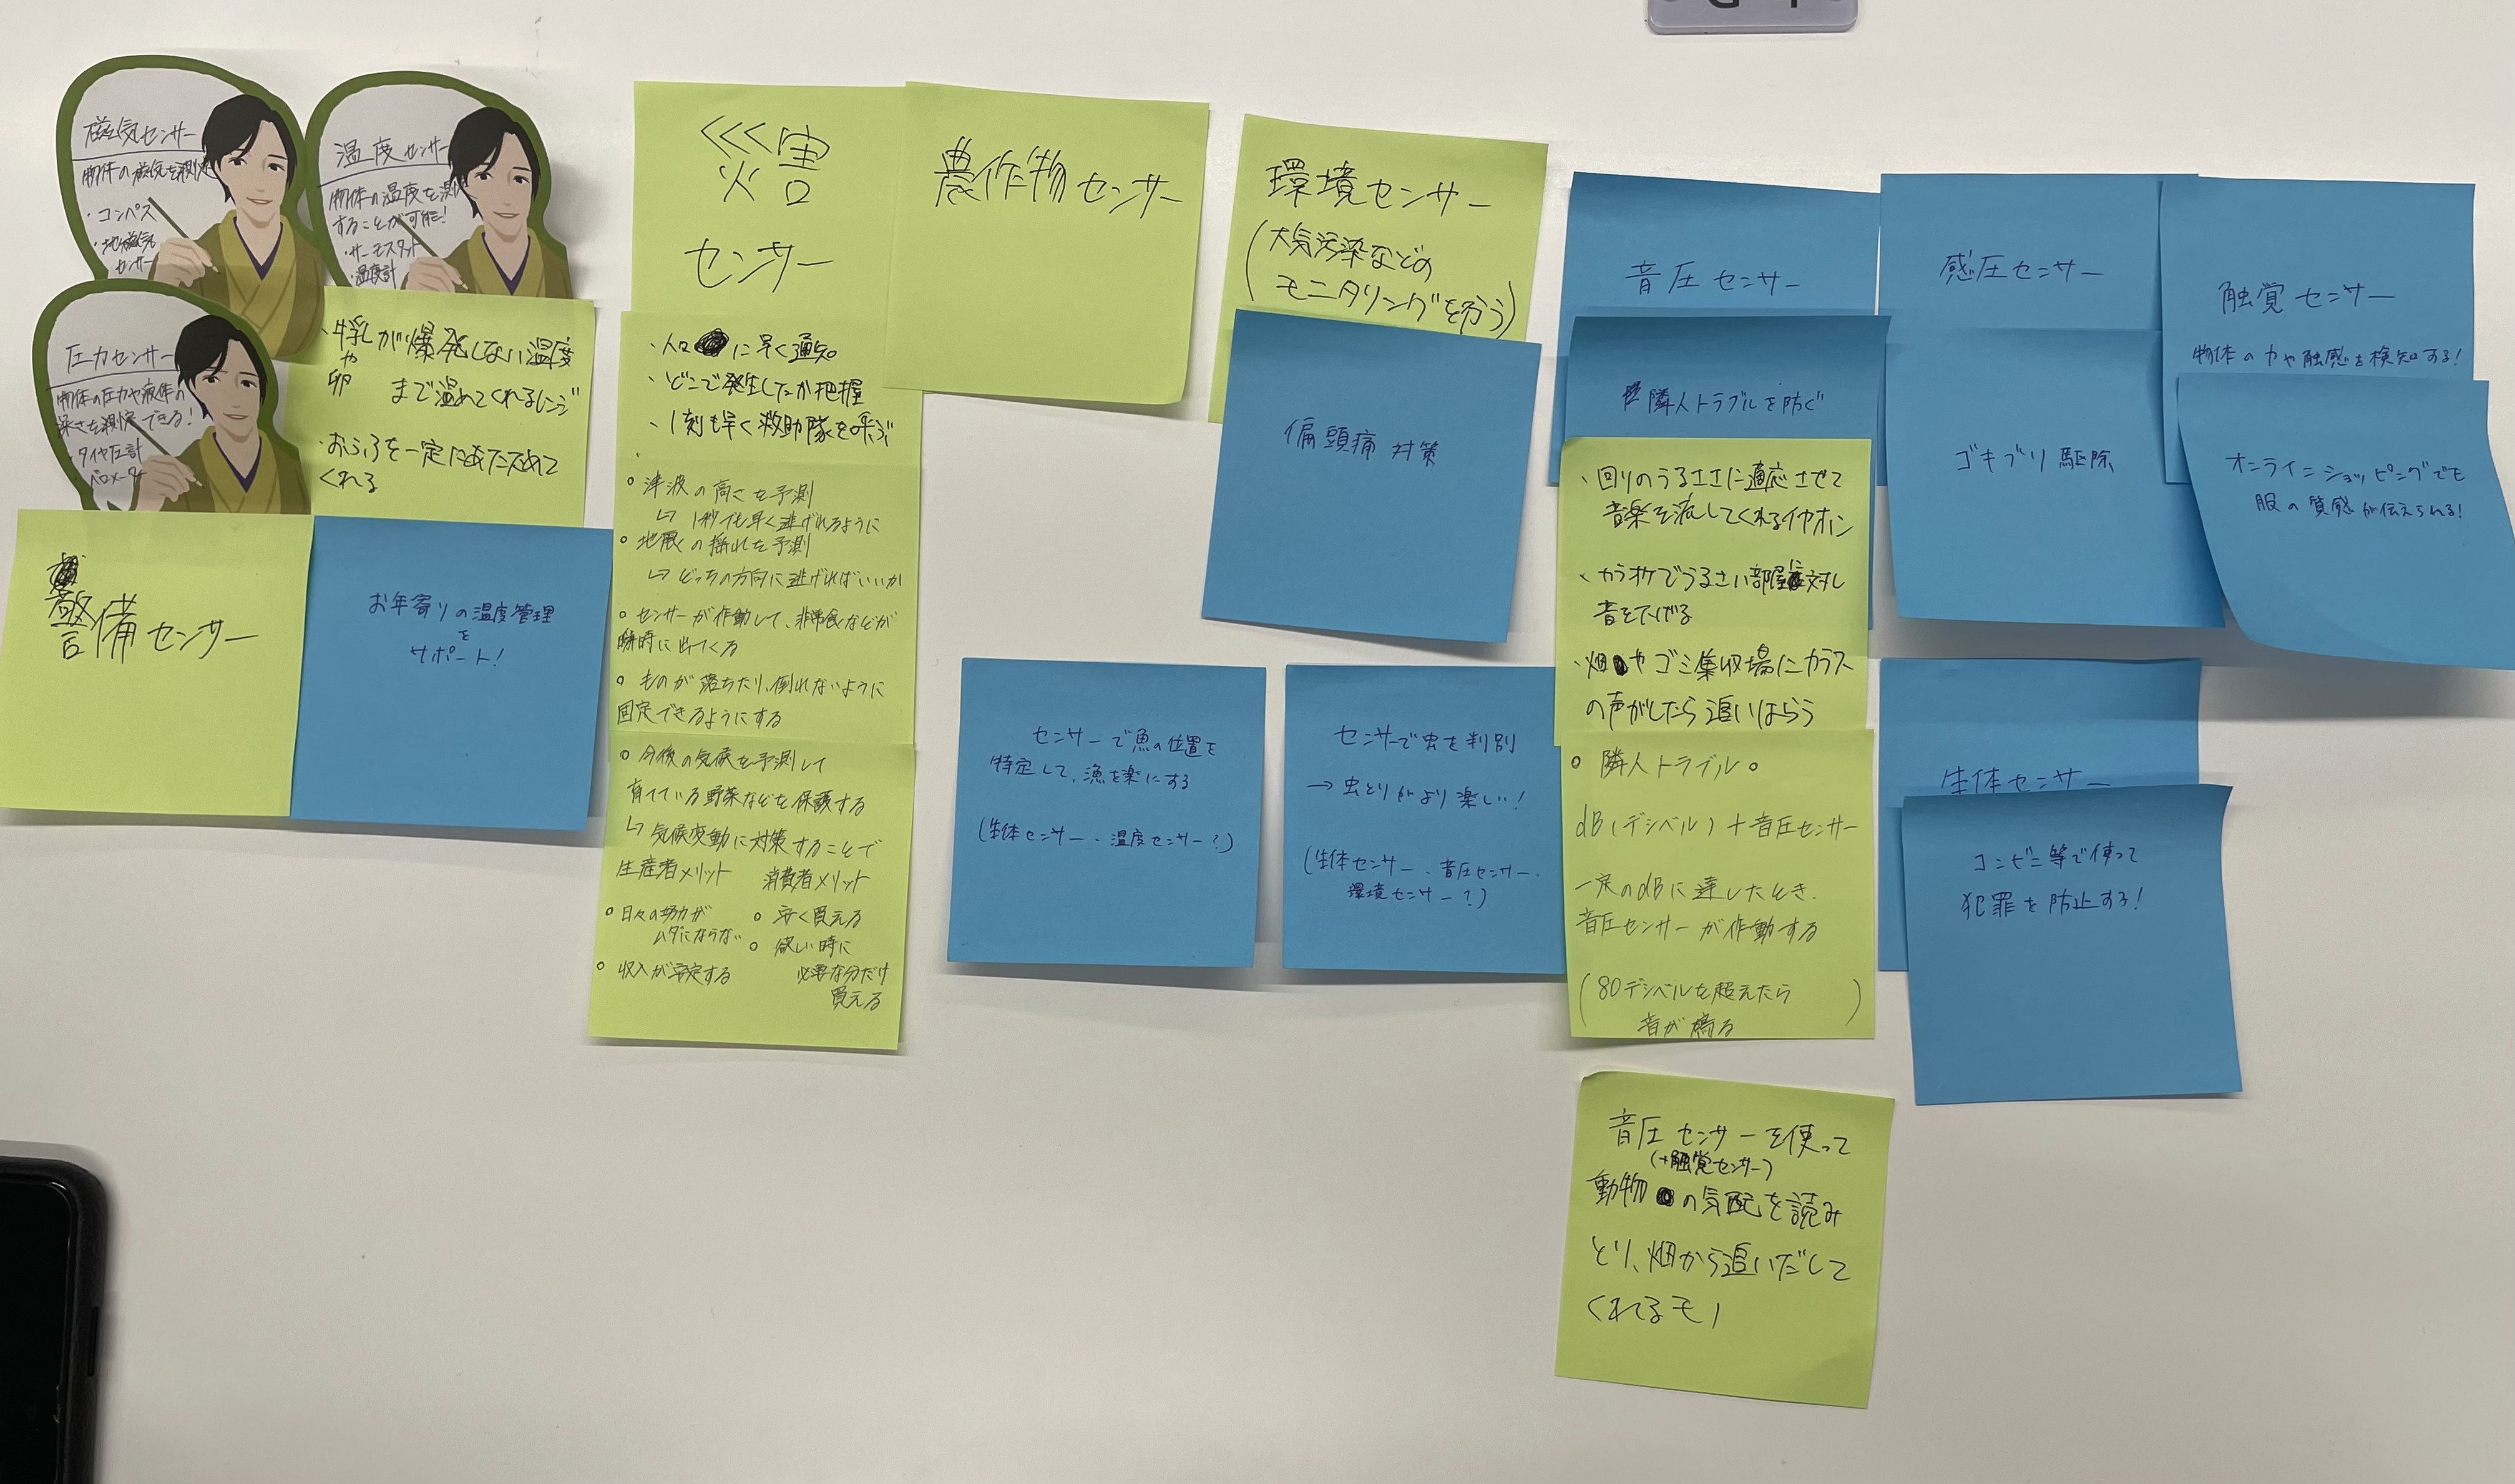 磁気センサー
物体の磁気を測定
・コンパス
・地磁気
センサー
温度センサー
物体の温度を測
することが可能!
・サーモスタット
・温度計
圧力センサー
物体の圧力や液体の
深さを測定できる!
・タイヤ圧計
バロメーター
・牛乳が爆発しない温度
や
卵 まで温めてくれるレンジ
・おふろを一定にあたためて
くれる
警備センサー
お年寄りの温度管理
を
サポート!
災害
センサー
・人々に早く通知
・どこで発生したか把握
・1刻も早く救助隊を呼ぶ
・
○ 津波の高さを予測
↳ 1秒でも早く逃げれるように
○ 地震の揺れを予測
↳ どっちの方向に逃げればいいか
○ センサーが作動して、非常食などが
瞬時に出てくる
○ ものが落ちたり、倒れないように
固定できるようにする
○ 今後の気候を予測して
育てている野菜などを保護する
↳ 気候変動に対策することで
生産者メリット 消費者メリット
○ 日々の努力が
ムダにならない
○ 収入が安定する
○ 安く買える
○ 欲しい時に
必要な分だけ
買える
農作物センサー
環境センサー
(大気汚染などの
モニタリングを行う)
偏頭痛 対策
センサーで魚の位置を
特定して、漁を楽にする
(生体センサー、温度センサー?)
センサーで虫を判別
→ 虫とりがより楽しい!
(生体センサー、音圧センサー、
環境センサー?)
音圧センサー
隣人トラブルを防ぐ
・回りのうるささに適応させて
音楽を流してくれるイヤホン
・カラオケでうるさい部屋に対し
音を下げる
・畑やゴミ集収場にカラス
の声がしたら追いはらう
○ 隣人トラブル ○
dB(デシベル)+音圧センサー
一定のdBに達したとき、
音圧センサーが作動する
(80デシベルを超えたら
音が鳴る)
音圧センサーを使って
(+触覚センサー)
動物の気配を読み
とり、畑から追いだして
くれるモノ
感圧センサー
ゴキブリ駆除
触覚センサー
物体の力や触感を検知する!
オンラインショッピングでも
服の質感が伝えられる!
生体センサー
コンビニ等で使って
犯罪を防止する!